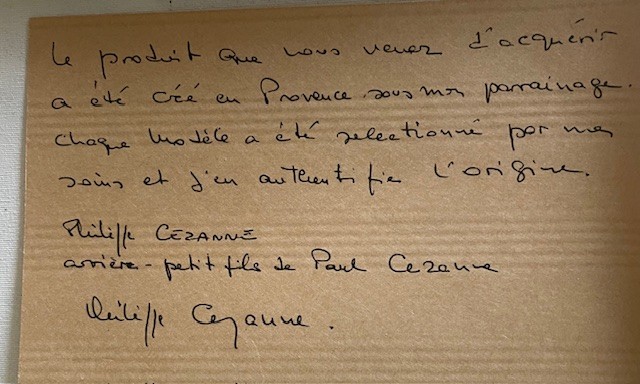 Le produit que vous venez d'acquérir
a été créé en Provence sous mon parrainage.
Chaque modèle a été selectionné par mes
soins et j'en authentifie l'origine.
Philippe CEZANNE
arrière-petit fils de Paul Cezanne
Philippe Cezanne.